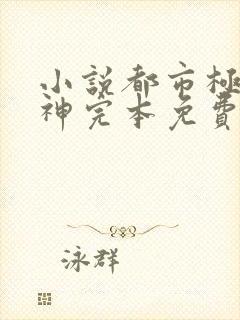 小説都市極
神完本免費
泳群